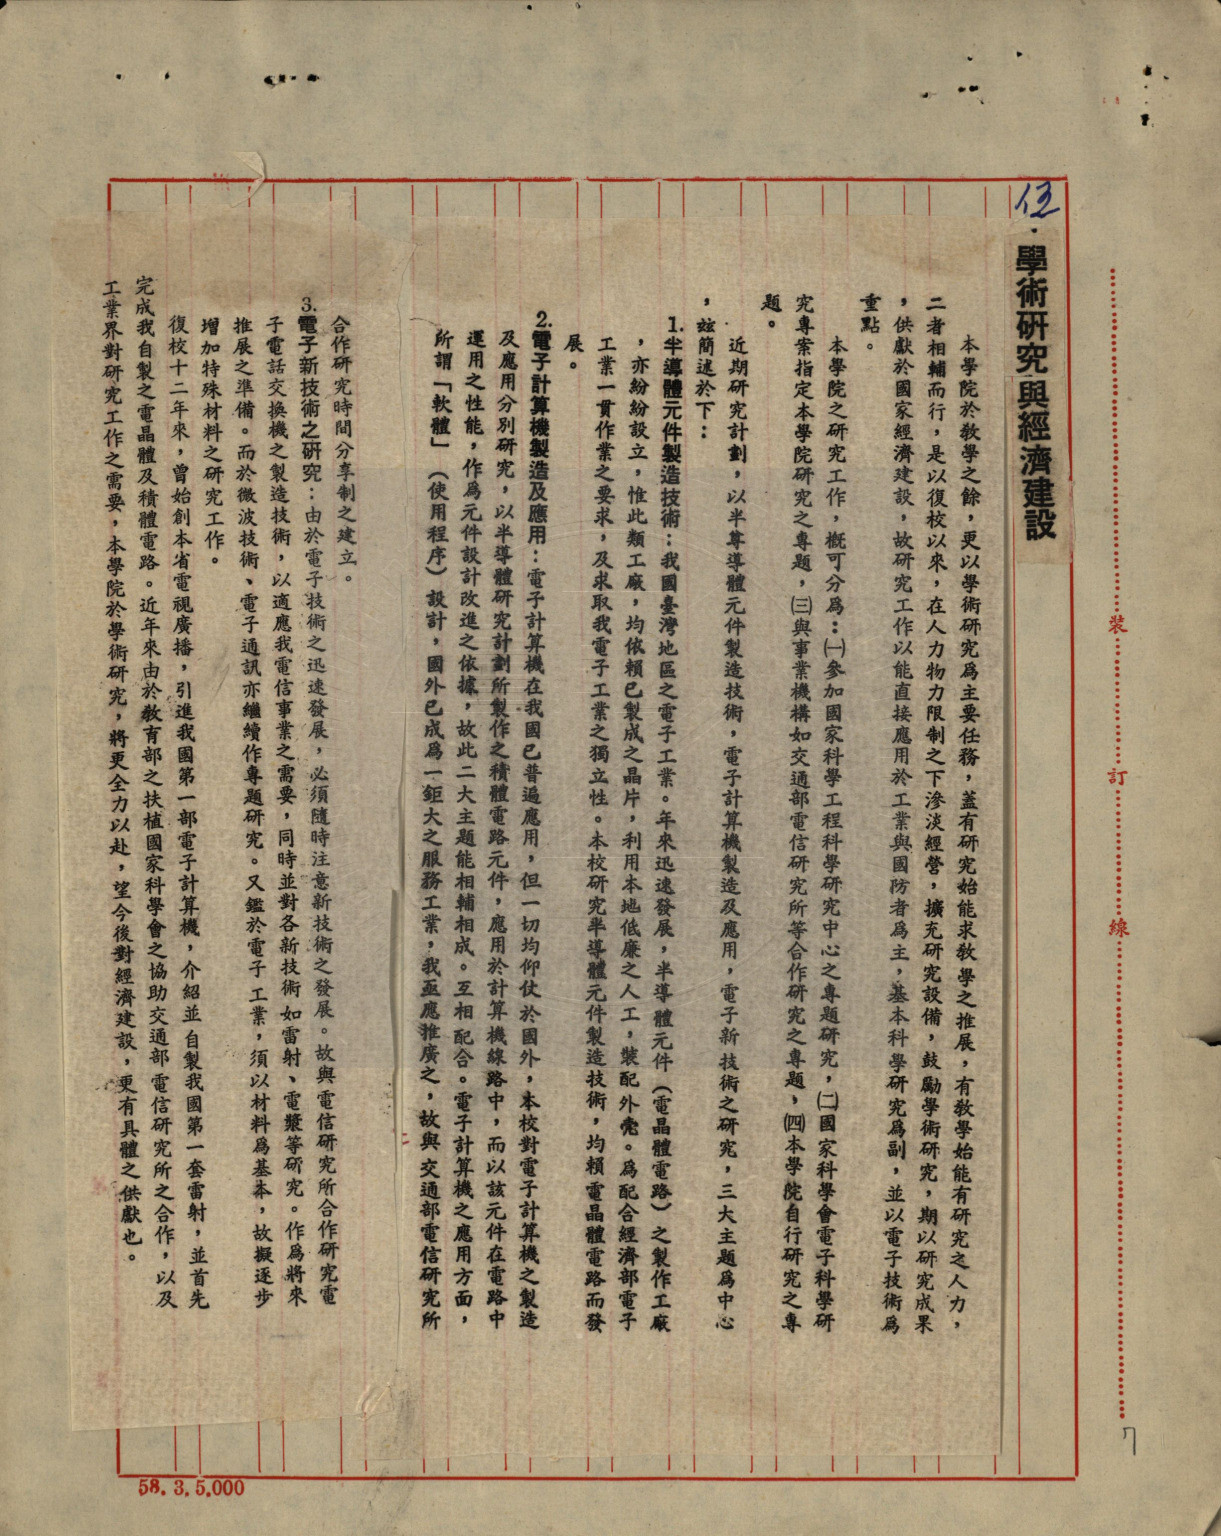 13.學術研究與經濟建設
本學院於教學之餘，更以學術研究爲主要任務，蓋有研究始能求教學之推展，有教學始能有研究之人力，
二者相輔而行，是以復校以來，在人力物力限制之下滲淡經營，擴充研究設備，鼓勵學術研究，期以研究成果
，供獻於國家經濟建設，故研究工作以能直接應用於工業與國防者爲主，基本科學研究爲副，並以電子技術爲
重點。
本學院之研究工作，概可分爲：㈠參加國家科學工程科學研究中心之專題研究，㈡國家科學會電子科學研
究專案指定本學院研究之專題，㈢與事業機構如交通部電信研究所等合作研究之專題，㈣本學院自行研究之專
題。
近期研究計劃，以半導導體元件製造技術，電子計算機製造及應用，電子新技術之研究，三大主題爲中心
，玆簡述於下：
1.半導體元件製造技術：我國臺灣地區之電子工業。年來迅速發展，半導體元件（電晶體電路）之製作工廠
，亦紛紛設立，惟此類工廠，均依賴已製成之晶片，利用本地低廉之人工，裝配外壳。爲配合經濟部電子
工業一貫作業之要求，及求取我電子工業之獨立性。本校研究半導體元件製造技術，均賴電晶體電路而發
展。
2.電子計算機製造及應用：電子計算機在我國已普遍應用，但一切均仰仗於國外，本校對電子計算機之製造
及應用分別研究，以半導體研究計劃所製作之積體電路元件，應用於計算機線路中，而以該元件在電路中
運用之性能，作爲元件設計改進之依據，故此二大主題能相輔相成。互相配合。電子計算機之應用方面，
所謂「軟體」（使用程序）設計，國外已成爲一鉅大之服務工業，我亟應推廣之，故與交通部電信研究所
合作研究時間分享制之建立。
3.電子新技術之研究：由於電子技術之迅速發展，必須隨時注意新技術之發展。故與電信研究所合作研究電
子電話交換機之製造技術，以適應我電信事業之需要，同時並對各新技術如雷射、電漿等研究。作爲將來
推展之準備。而於微波技術、電子通訊亦繼續作專題研究。又鑑於電子工業，須以材料爲基本，故擬逐步
增加特殊材料之研究工作。
復校十二年來，曾始創本省電視廣播，引進我國第一部電子計算機，介紹並自製我國第一套雷射，並首先
完成我自製之電晶體及積體電路。近年來由於教育部之扶植國家科學會之協助交通部電信研究所之合作，以及
工業界對研究工作之需要，本學院於學術研究，將更全力以赴，望今後對經濟建設，更有具體之供獻也。
裝訂線
7
58. 3. 5.000